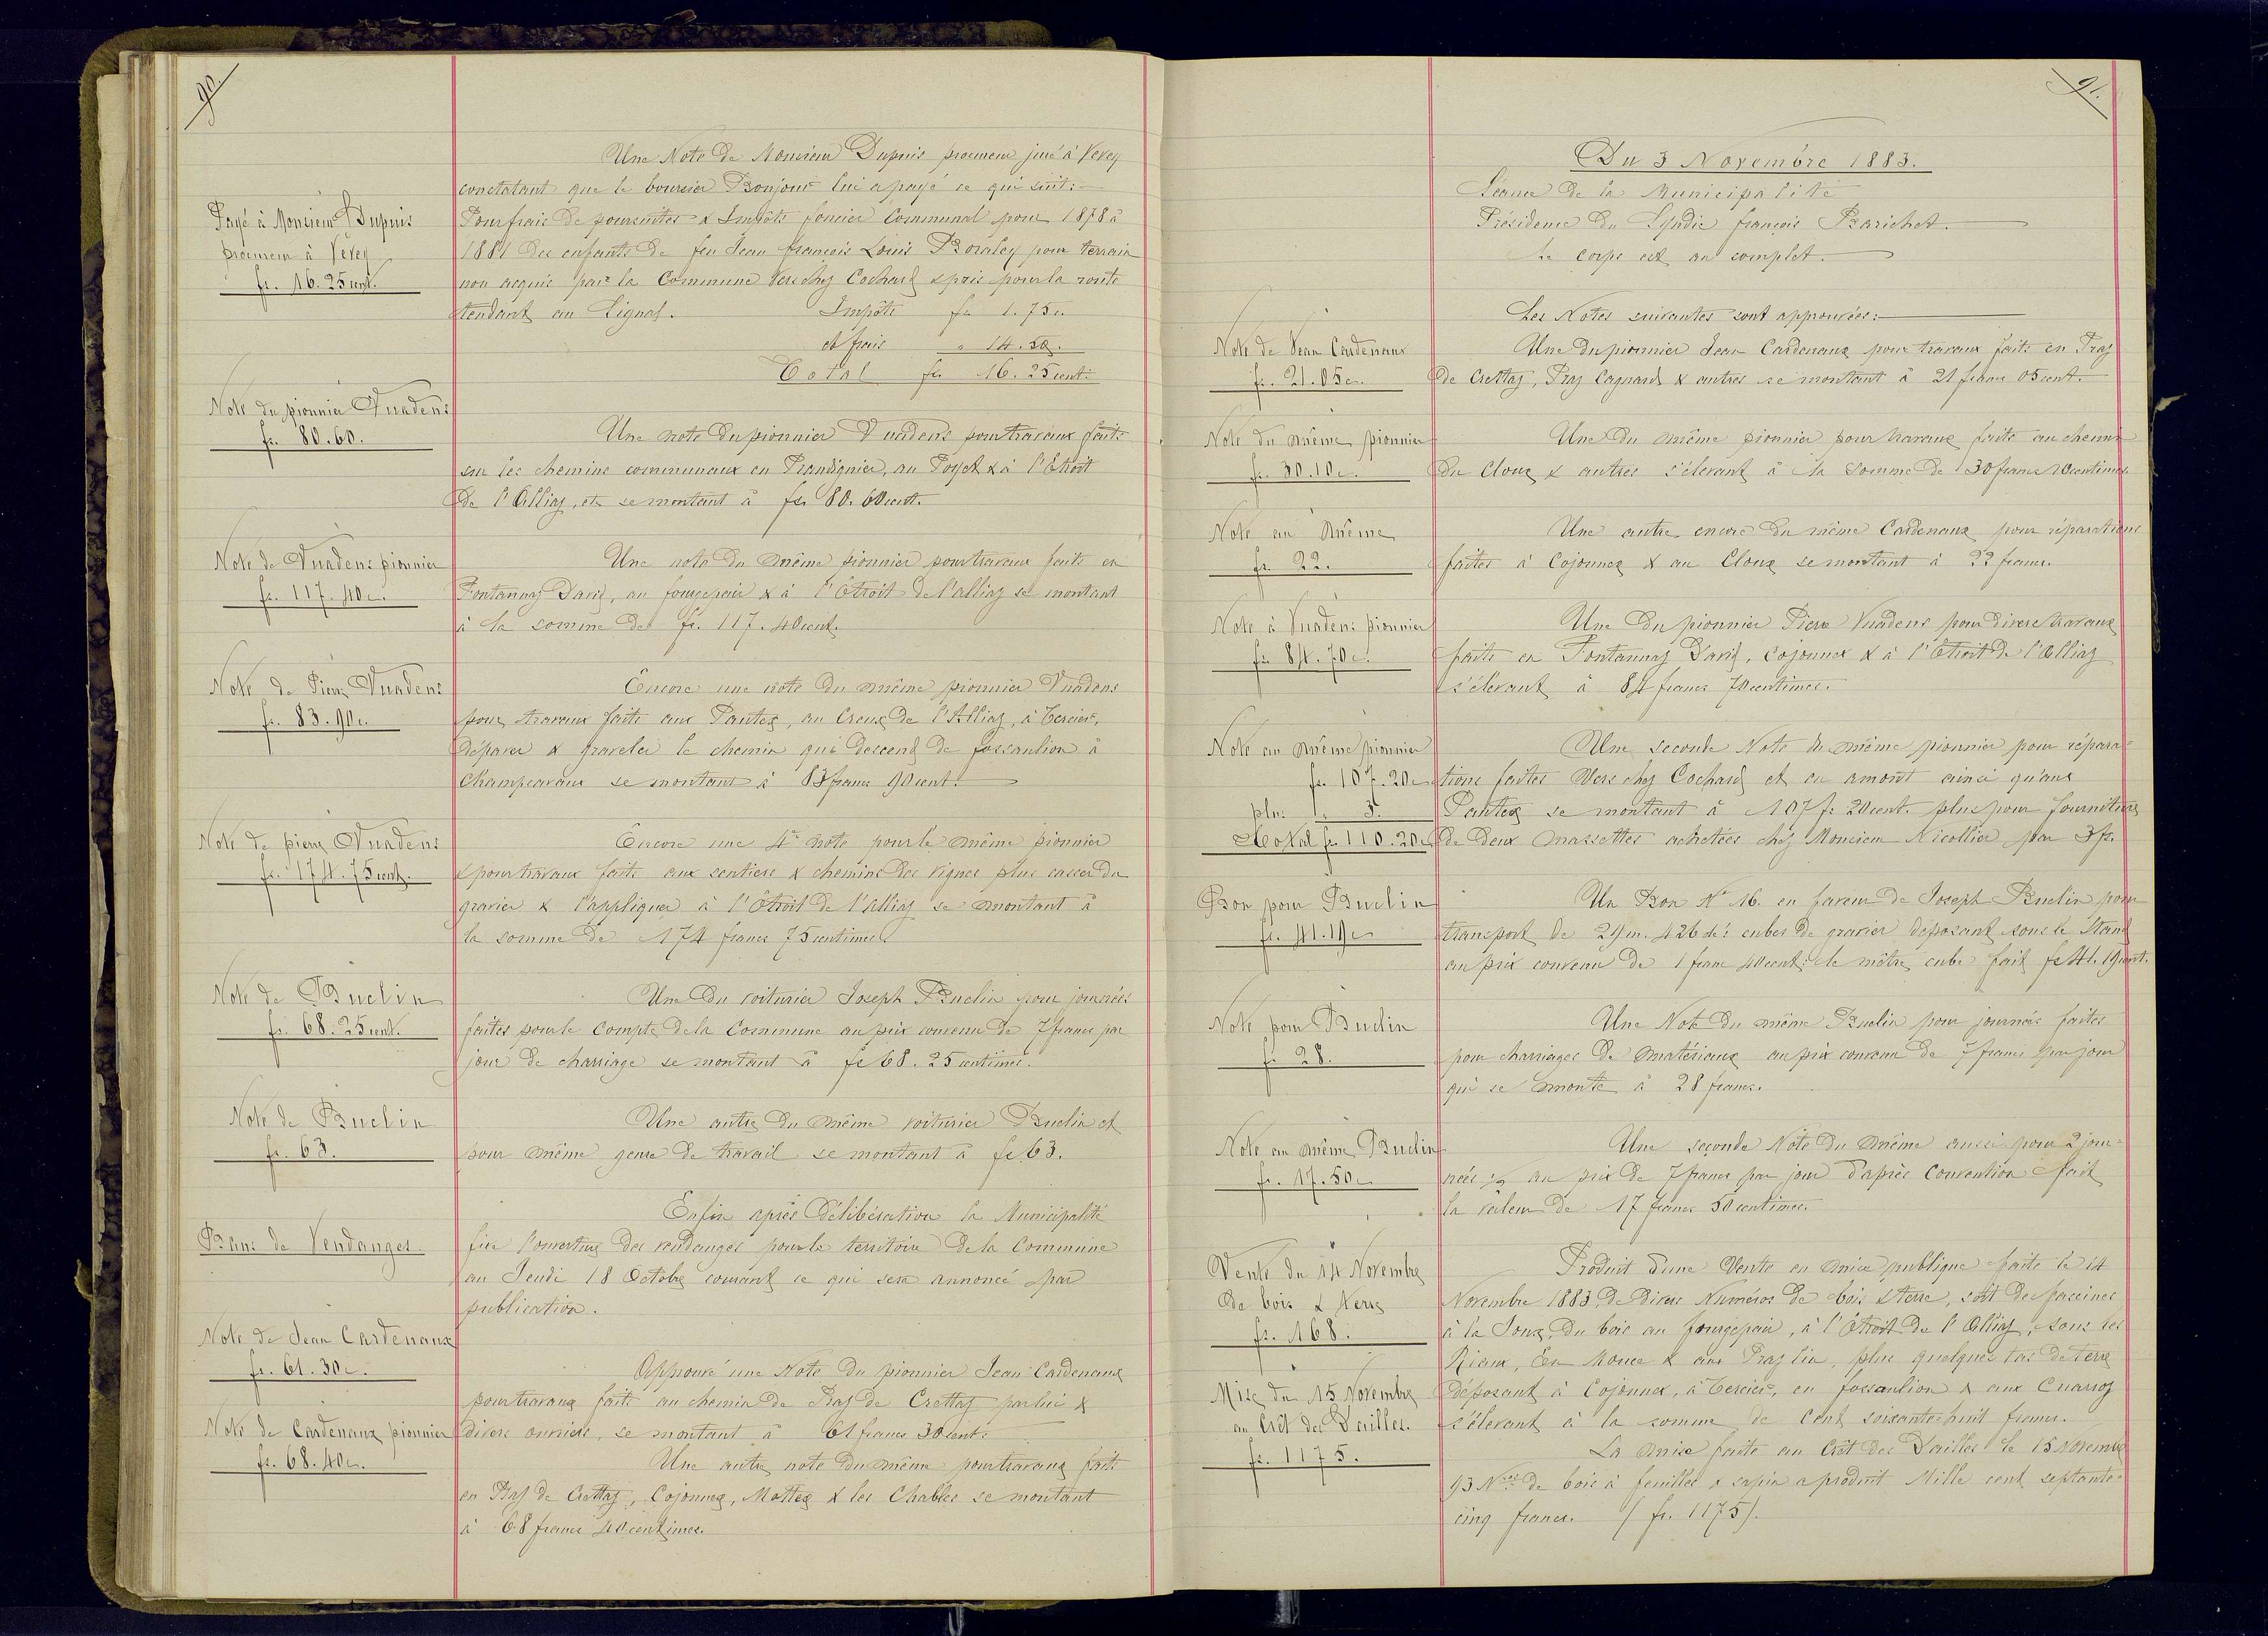 90.
Une Note de Monsieur Dupuis procureur juré à Vevey
constatant que le boursier Bonjour lui a payé ce qui suit:
Payé à Monsieur Dupuis
procureur à Vevey
fr. 16.25 cent.
Pour frais de poursuites & Impôts foncier Communal pour 1878 à
1881 des enfants de feu Jean François Louis Boraley pour terrain
non acquis par la Commune Vers chez Cochard & pris pour la route
tendant au Signal. Impôts fr 1.75c.
et frais " 14.50.
Total fr. 16.25 cent.
Note du pionnier Vuadens
fr. 80.60.
Une note du pionnier Vuadens pour travaux faits
sur les chemins communaux en Prantignier, au Poyet & à l'Etroit
de l'Alliaz, etc se montant à fr 80.60 cent.
Note de Vuadens pionnier
fr. 117.40c.
Une note du même pionnier pour travaux faits en
Fontannaz David, au fourgepair & à l'Etroit de l'alliaz se montant
à la somme de fr. 117.40 cent.
Note de Pierre Vuadens
fr. 83.90c.
Encore une note du même pionnier Vuadens
pour travaux faits aux Pautex, au Creux de l'Alliaz, à Tercier,
déparer & graveler le chemin qui descend de fossantion à
Champcaraux se montant à 83 francs 90 cent.
Note de pierre Vuadens
fr. 174.75 cent.
Encore une 4e note pour le même pionnier
& pour travaux faits aux sentiers & chemins des vignes plus casser du
gravier & l'appliquer à l'Etroit de l'Alliaz se montant à
la somme de 174 francs 75 centimes.
Note de Buclin
fr. 68.25 cent.
Une du voiturier Joseph Buclin pour journées
faites pour le compte de la Commune au prix convenu de 7 francs par
jour de charriage se montant à fr 68.25 centimes.
Note de Buclin
fr. 63.
Une autre du même voiturier Buclin et
pour même genre de travail se montant à fr 63.
Bans de Vendanges.
Enfin après Délibération la Municipalité
fixe l'ouverture des vendanges pour le territoire de la Commune
au Jeudi 18 Octobre courant ce qui sera annoncé par
publication.
Note de Jean Cardenaux
fr. 61.30c.
Approuvé une Note du pionnier Jean Cardenaux
pour travaux faits au chemin de Praz de Crettaz par lui &
divers ouvriers, se montant à 61 francs 30 cent.
Note de Cardenaux pionnier
fr. 68.40c.
Une autre note du même pour travaux faits
en Praz de Crettaz, Cojonnex, Mottex & les Chables se montant
à 68 francs 40 centimes.
91.
Du 3 Novembre 1883.
Séance de la Municipalité
Présidence du Syndic françois Barichet.
Le corps est au complet.
Les Notes suivantes sont approuvées:
Note de Jean Cardenaux
fr. 21.05c.
Une du pionnier Jean Cardenaux pour travaux faits en Praz
de Crettaz, Praz Cagnard & autres se montant à 21 francs 05 cent.
Note du même pionnier
fr. 30.10c.
Une du même pionnier pour travaux faits au chemin
du Cloux & autres s'élevant à la somme de 30 francs 10 centimes.
Note au même
fr. 22.
Une autre encore du même Cardenaux pour réparations
faites à Cojonnex & au Cloux se montant à 22 francs.
Note à Vuadens pionnier
fr. 84.70c.
Une du pionnier Pierre Vuadens pour divers travaux
faits en Fontannaz David, Cojonnex & à l'Etroit de l'Alliaz
s'élevant à 84 francs 70 centimes.
Note au même pionnier
fr. 107.20c
plus " 3.
Total fr. 110.20c
Une seconde Note du même pionnier pour répara-
tions faites Vers chez Cochard et en amont ainsi qu'aux
Pautex se montant à 107 fr 20 cent. plus pour fourniture
de deux massettes achetées chez Monsieur Nicollier par 3 fr.
Bon pour Buclin
fr. 41.19c
Un Bon No 16. en faveur de Joseph Buclin pour
transport de 29 m. 426 dé: cubes de gravier déposant sous le Stand
au prix convenu de 1 franc 40 cent: le mètre cube fait fr 41.19 cent.
Note pour Buclin
fr 28.
Une Note du même Buclin pour journées faites
pour charriages de matériaux au prix convenu de 7 francs par jour
qui se monte à 28 francs.
Note au même Buclin
fr. 17.50c
Une seconde Note du même aussi pour 2 jour-
nées ½ au prix de 7 francs par jour d'après Convention fait
la valeur de 17 francs 50 centimes.
Vente du 14 Novembre
de bois & terre
fr. 168.
Produit d'une Vente en mise publique faite le 14
Novembre 1883 de divers Numéros de bois & terre, soit de fascines
à la Joux, du bois au fourgepair, à l'étroit de l'Alliaz, sous les
Riaux, En Mouce & aux Praz lin, plus quelques tas de terre
déposant à Cojonnex, à Tercier, en fossantion & aux Cuarroz
s'élevant à la somme de Cent soixante-huit francs.
Mise du 15 Novembre
au Crêt des Dailles.
fr. 1175.
La mise faite au Crêt des Dailles le 15 Novembre
93 Nos de bois à feuilles & sapin a produit Mille cent septante-
cinq francs. (fr. 1175).